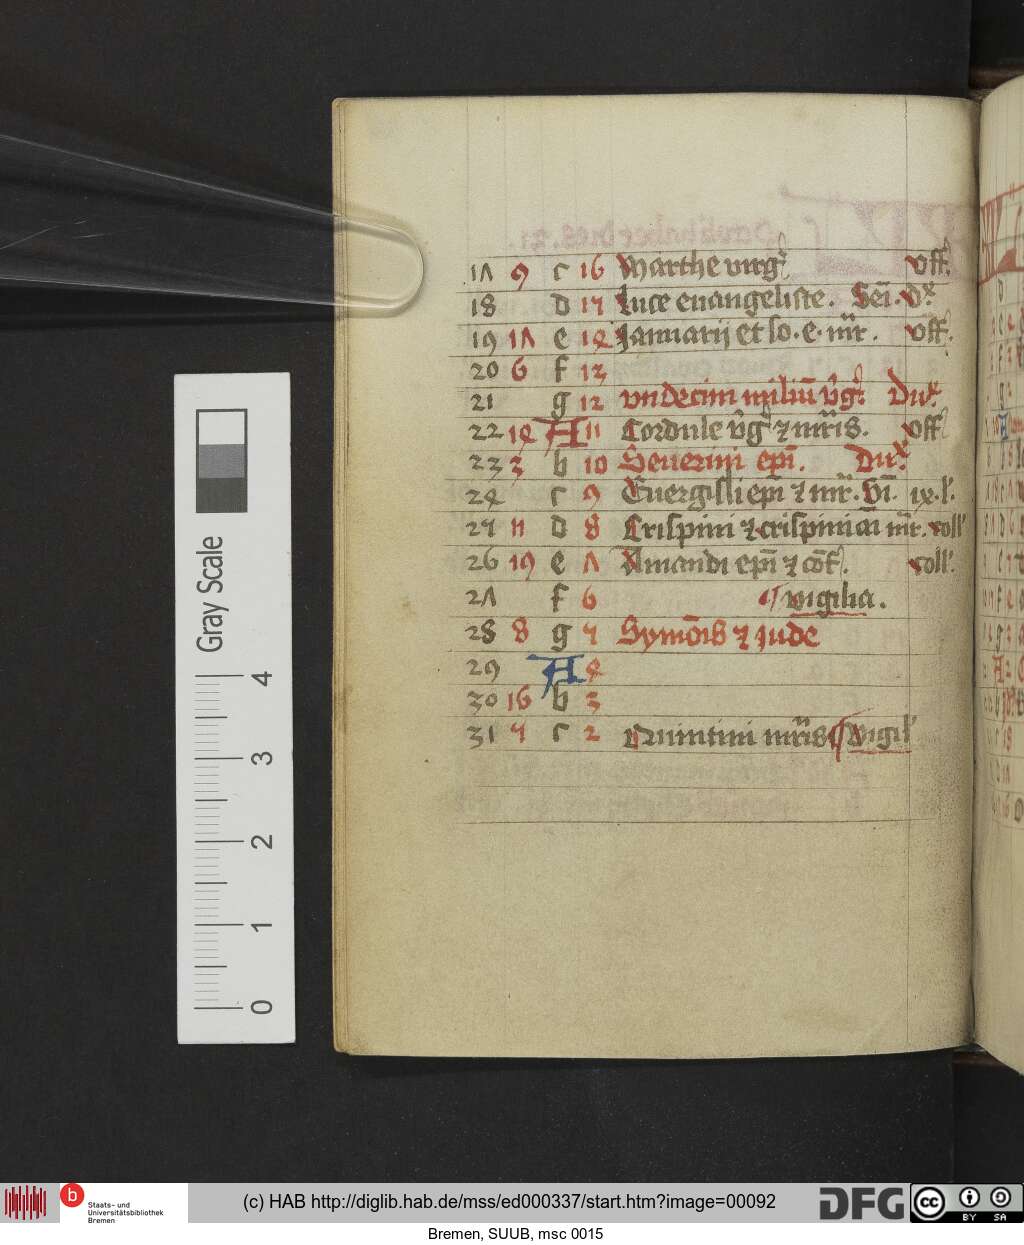 17 9 c 16 Marthe virg̃ off.
18 d 17 Luce euangeliste. Sem̃. dx
19 17 e 14 Januarij et so. e. mr̃. off.
20 6 f 13
21 g 12 vndecim miliũ v̄g. Dux
22 14 A 11 Cordule v̄g ⁊ mr̃is. off
23 3 b 10 Seuerini ep̃i. Dux
24 c 9 Euergisli ep̃i ⁊ mr̃. ix. l'.
25 11 d 8 Crispini ⁊ crispiniani mr̃. coll'
26 19 e 7 Amandi ep̃i ⁊ cõf. coll'.
27 f 6 vigilia.
28 8 g 5 Symõis ⁊ Jude
29 A 4
30 16 b 3
31 5 c 2 Quintini mr̃is vigil'
Gray Scale
4
3
2
1
0
b Staats- und
Universitätsbibliothek
Bremen
(c) HAB http://diglib.hab.de/mss/ed000337/start.htm?image=00092
DFG
cc BY SA
Bremen, SUUB, msc 0015